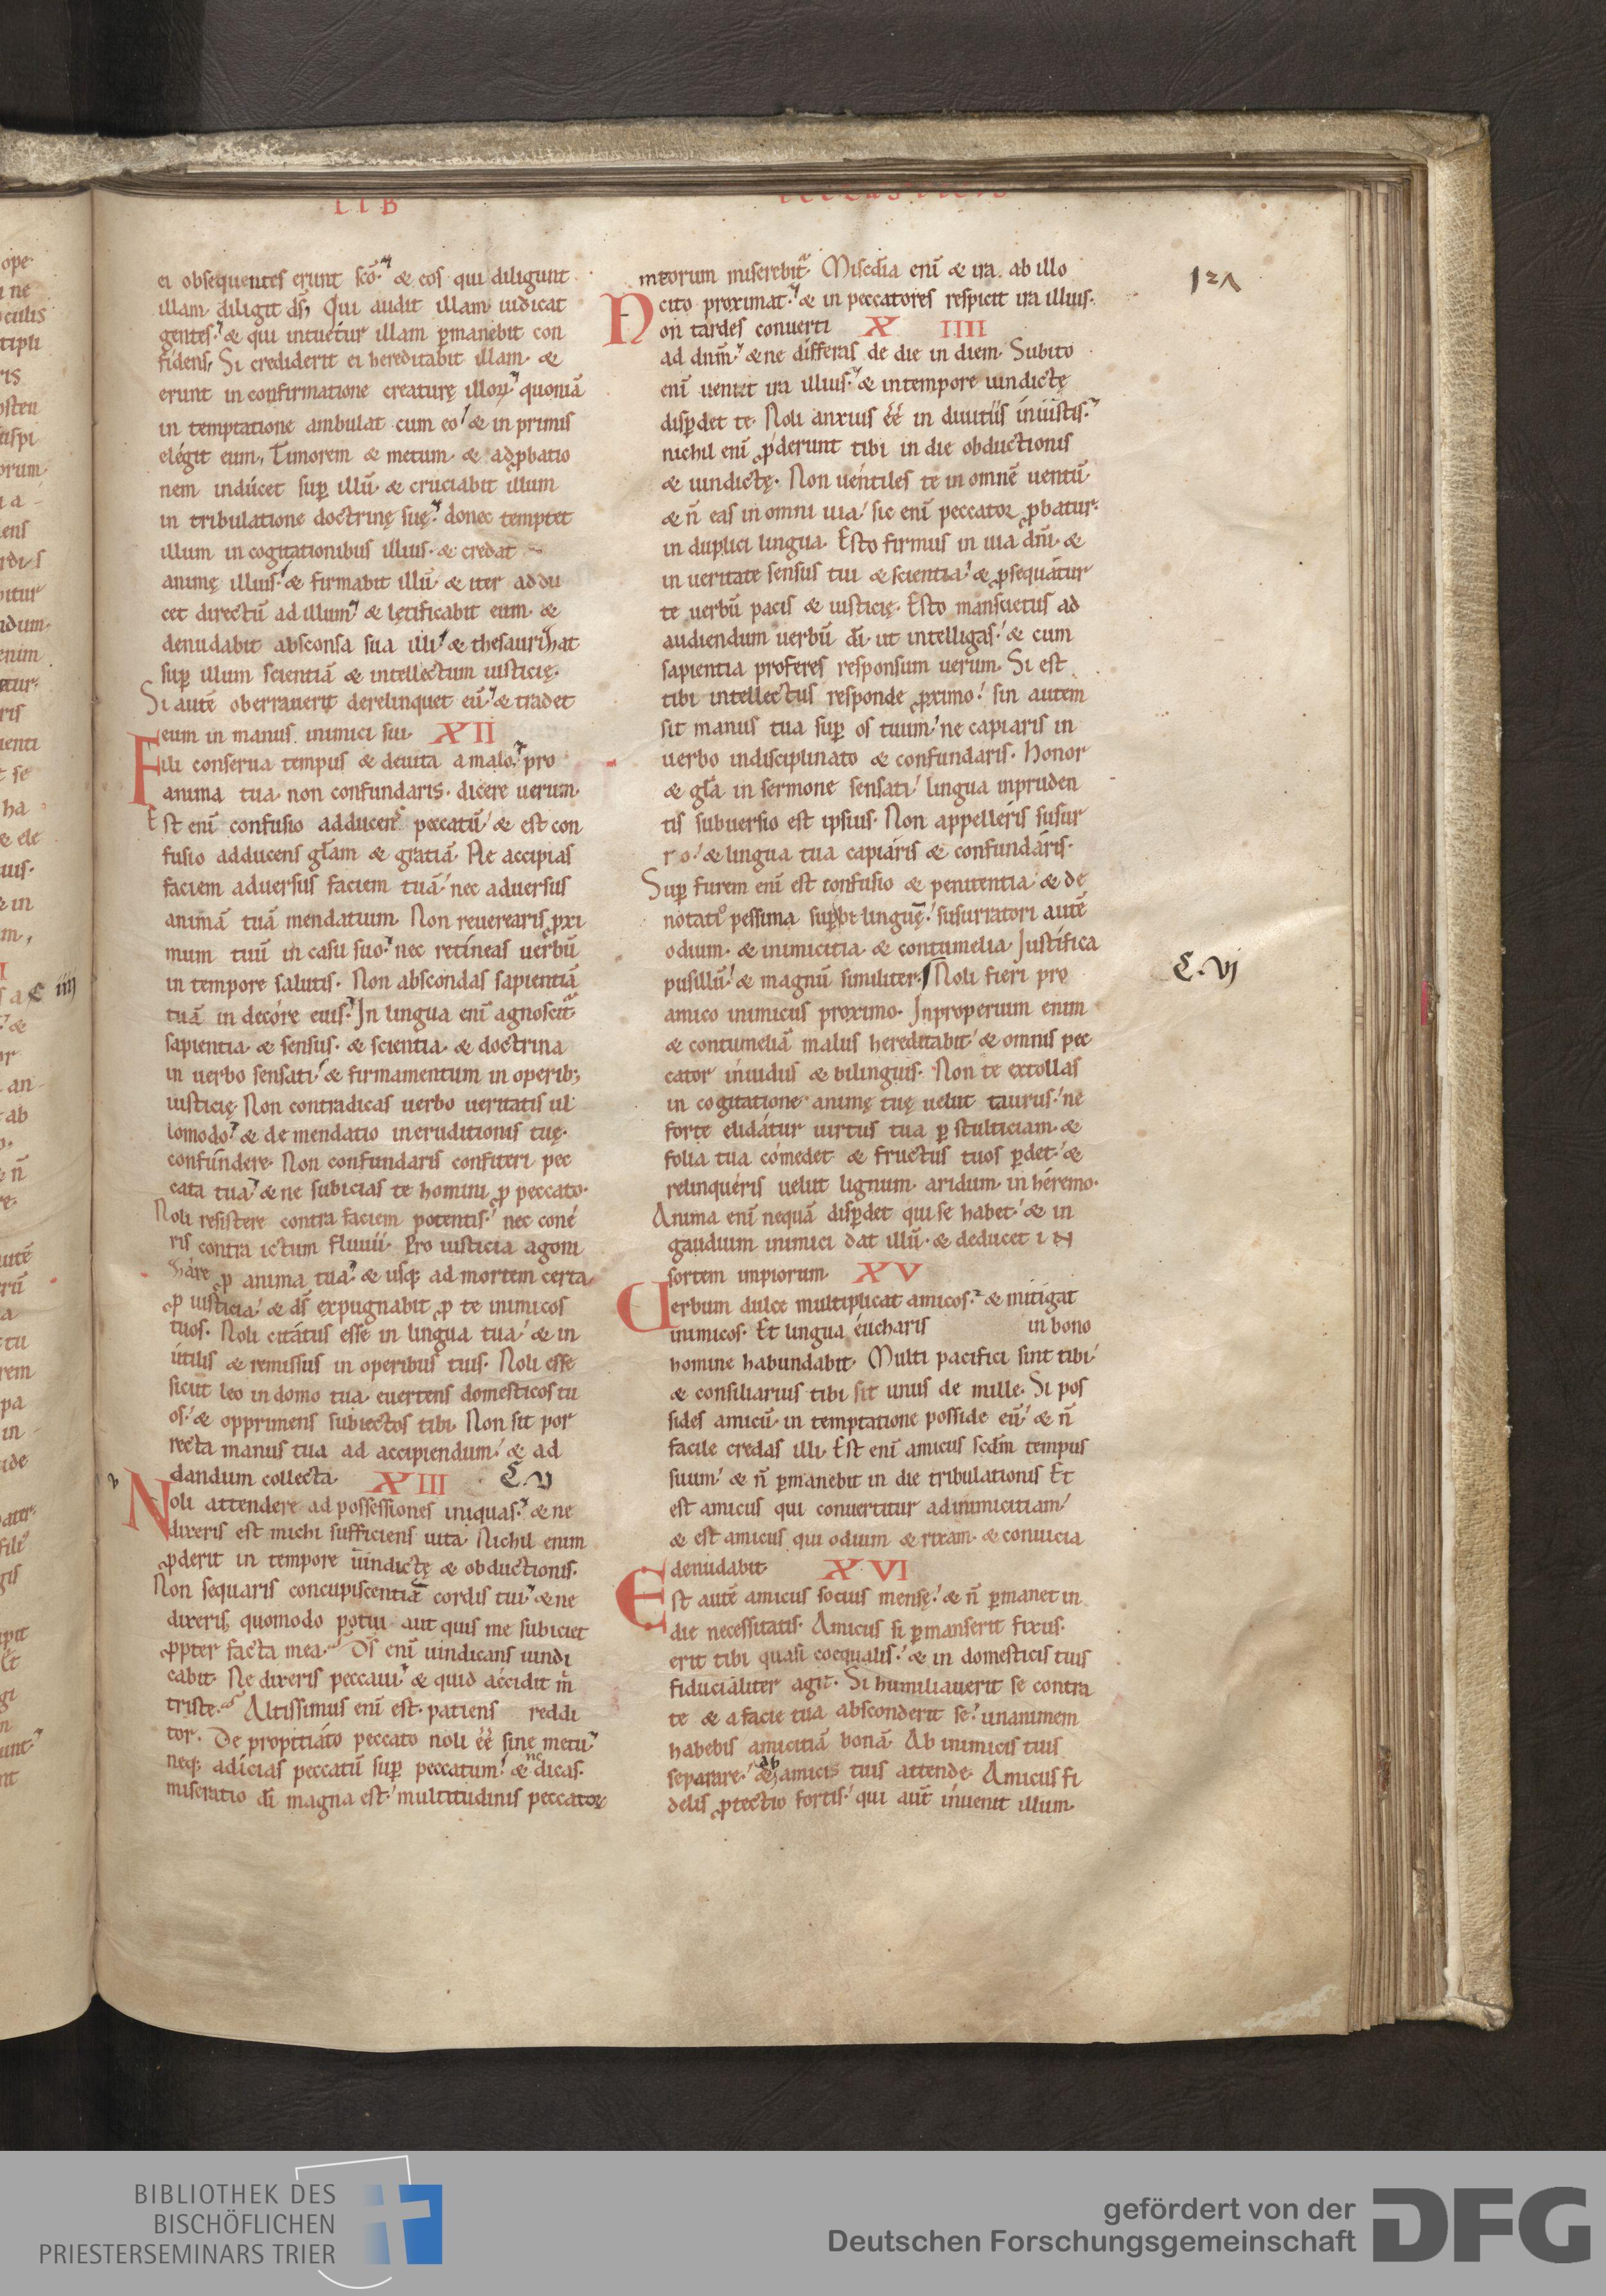 LIB
ei obsequentes erunt scō. & eos qui diligunt
illam diligit ds, Qui audit illam iudicat
gentes. & qui intuetur illam pmanebit con
fidens, Si crediderit ei hereditabit illam. &
erunt in confirmatione creaturę illoꝝ quoniā
in temptatione ambulat cum eo & in primis
elégit eum, Timorem & metum & adꝓbatio
nem indúcet suꝑ illū. & cruciabit illum
in tribulatione doctrinę suę. donec temptet
illum in cogitationibus illius. & credat
animę illius. & firmabit illū & iter addu
cet directū ad illum & lętificabit eum. &
denudabit absconsa sua illi & thesaurizat
suꝑ illum scientiā & intellectum iusticię.
Si autē oberrauerit derelinquet eū & tradet
eum in manus inimici sui. XII
Fili conserua tempus & deuita a malo. pro
anima tua non confundaris. dicere uerum.
Est enī confusio adducens peccatū & est con
fusio adducens glam & gratiā. Ne accipias
faciem aduersus faciem tuā nec aduersus
animā tuā mendatium. Non reuerearis ꝓxi
mum tuū in casu suo. nec retineas uerbū
in tempore salutis. Non abscondas sapientiā
tuā in decóre eius. In lingua enī agnoscit
sapientia & sensus. & scientia & doctrina
in uerbo sensati. & firmamentum in operib;
iusticię. Non contradicas uerbo ueritatis ul
lomodo. & de mendatio ineruditionis tuę.
confúndere. Non confundaris confiteri pec
cata tua & ne subicias te homini ꝓ peccato.
Noli resistere contra faciem potentis. nec coné
ris contra ictum fluuii. Pro iusticia agoni
záre ꝓ anima tua. & usq; ad mortem certa
ꝓ iusticia. & ds expugnabit ꝓ te inimicos
tuos. Noli citátus esse in lingua tua & in
útilis & remissus in operibus tuis. Noli esse
sicut leo in domo tua euertens domesticos tu
os. & opprimens subiectos tibi. Non sit por
recta manus tua ad accipiendum & ad
dandum collecta. XIII C. v
Noli attendere ad possessiones iniquas. & ne
dixeris est michi sufficiens uita. Nichil enim
ꝓderit in tempore uindictę & obductionis.
Non sequaris concupiscentiā cordis tui & ne
dixeris, quomodo potui. aut quis me subiciet
ꝓpter facta mea. Ds enī uindicans uindi
cabit. Ne dixeris peccaui & quid accidit m
triste. Altissimus enī est. patiens reddi
tor. De propitiáto peccato noli éé sine metu
neq; adicias peccatū suꝑ peccatum. & ne dicas.
miseratio di magna est. multitudinis peccator
mtorum miserebit. Misedia enī & ira. ab illo
cito proximat. & in peccatores respicit ira illius.
Non tardes conuerti X IIII
ad dnm. & ne differas de die in diem. Subito
enī ueniet ira illius. & in tempore uindictę
disꝑdet te. Noli anxius éé in diuitiis iniustis.
nichil enī ꝓderunt tibi in die obductionis
& uindictę. Non uéntiles te in omnē uentū
& ñ eas in omni uia sic enī peccator ꝓbatur.
in duplici lingua. Esto firmus in uia dni. &
in ueritate sensus tui & scientia. & ꝓsequátur
te uerbū pacis & iusticię. Esto mansuetus ad
audiendum uerbū di. ut intelligas. & cum
sapientia proferes responsum uerum. Si est
tibi intellectus responde ꝓximo. sin autem
sit manus tua suꝑ os tuum. ne capiaris in
uerbo indisciplinato & confundaris. Honor
& gla in sermone sensati lingua inpruden
tis subuersio est ipsius. Non appelléris susur
ro. & lingua tua capiáris & confundáris.
Suꝑ furem enī est confusio & penitentia. & de
notatio pessima suꝑ bilinguē. susurratori autē
odium. & inimicitia & contumelia. Iustifica
pusillū & magnū similiter. Noli fieri pro
amico inimicus proximo. Inproperium enim
& contumeliā malus hereditabit & omnis pec
cator inuidus & bilinguis. Non te extollas
in cogitatione animę tuę uelut taurus. ne
forte elidátur uirtus tua ꝑ stulticiam. &
folia tua cómedet & fructus tuos ꝑdet. &
relinquéris uelut lignum aridum in héremo.
Anima enī nequā disꝑdet qui se habet. & in
gaudium inimici dat illū. & deducet in
sortem impiorum. XV
Uerbum dulce multiplicat amicos. & mitigat
inimicos. Et lingua éucharis in bono
homine habundabit. Multi pacifici sint tibi
& consiliarius tibi sit unus de mille. Si pos
sides amicū in temptatione posside eū & ñ
facile credas illi. Est enī amicus scdm tempus
suum & ñ ꝑmanebit in die tribulationis. Et
est amicus qui conuertitur ad inimicitiam
& est amicus qui odium & rixam & conuicia
denudabit. XVI
Est autē amicus socius mensę. & ñ ꝑmanet in
die necessitatis. Amicus si ꝑmanserit fixus.
erit tibi quasi coequalis. & in domesticis tuis
fiduciáliter agit. Si humiliauerit se contra
te & a facie tua absconderit se. unanimem
habebis amicitiā bonā. Ab inimicis tuis
separare. & ab amicis tuis attende. Amicus fi
delis ꝓtectio fortis. qui aut inuenit illum.
C. vj
BIBLIOTHEK DES
BISCHÖFLICHEN
PRIESTERSEMINARS TRIER
gefördert von der
Deutschen Forschungsgemeinschaft
DFG